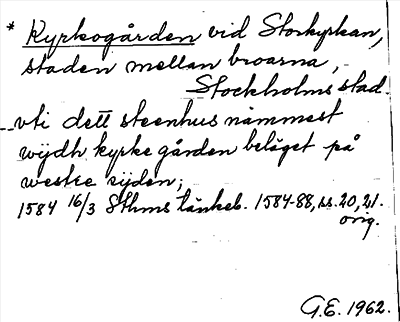 * Kyrkogården vid Storkyrkan,
staden mellan broarna,
Stockholms stad.
vti dett steenhus nämmest
wijdh kyrke gården beläget på
westre sijden;
1584 16/3 Sthms tänkeb. 1584-88, ss. 20, 21.
orig.
G.E. 1962.